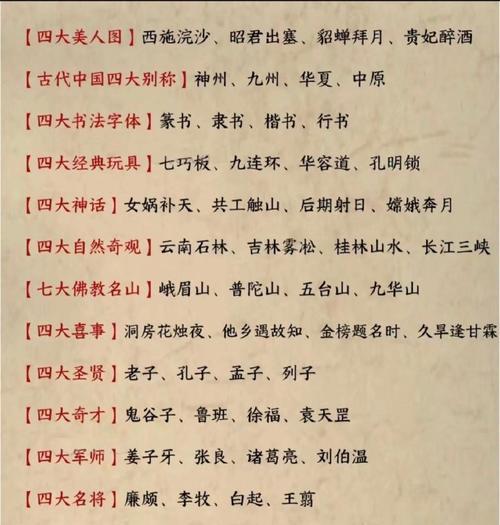 【四大美人图】西施浣沙、昭君出塞、貂蝉拜月、贵妃醉酒
【古代中国四大别称】神州、九州、华夏、中原
【四大书法字体】篆书、隶书、楷书、行书
【四大经典玩具】七巧板、九连环、华容道、孔明锁
【四大神话】女娲补天、共工触山、后期射日、嫦娥奔月
【四大自然奇观】云南石林、吉林雾凇、桂林山水、长江三峡
【七大佛教名山】峨眉山、普陀山、五台山、九华山
【四大喜事】洞房花烛夜、他乡遇故知、金榜题名时、久旱逢甘霖
【四大圣贤】老子、孔子、孟子、列子
【四大奇才】鬼谷子、鲁班、徐福、袁天罡
【四大军师】姜子牙、张良、诸葛亮、刘伯温
【四大名将】廉颇、李牧、白起、王翦